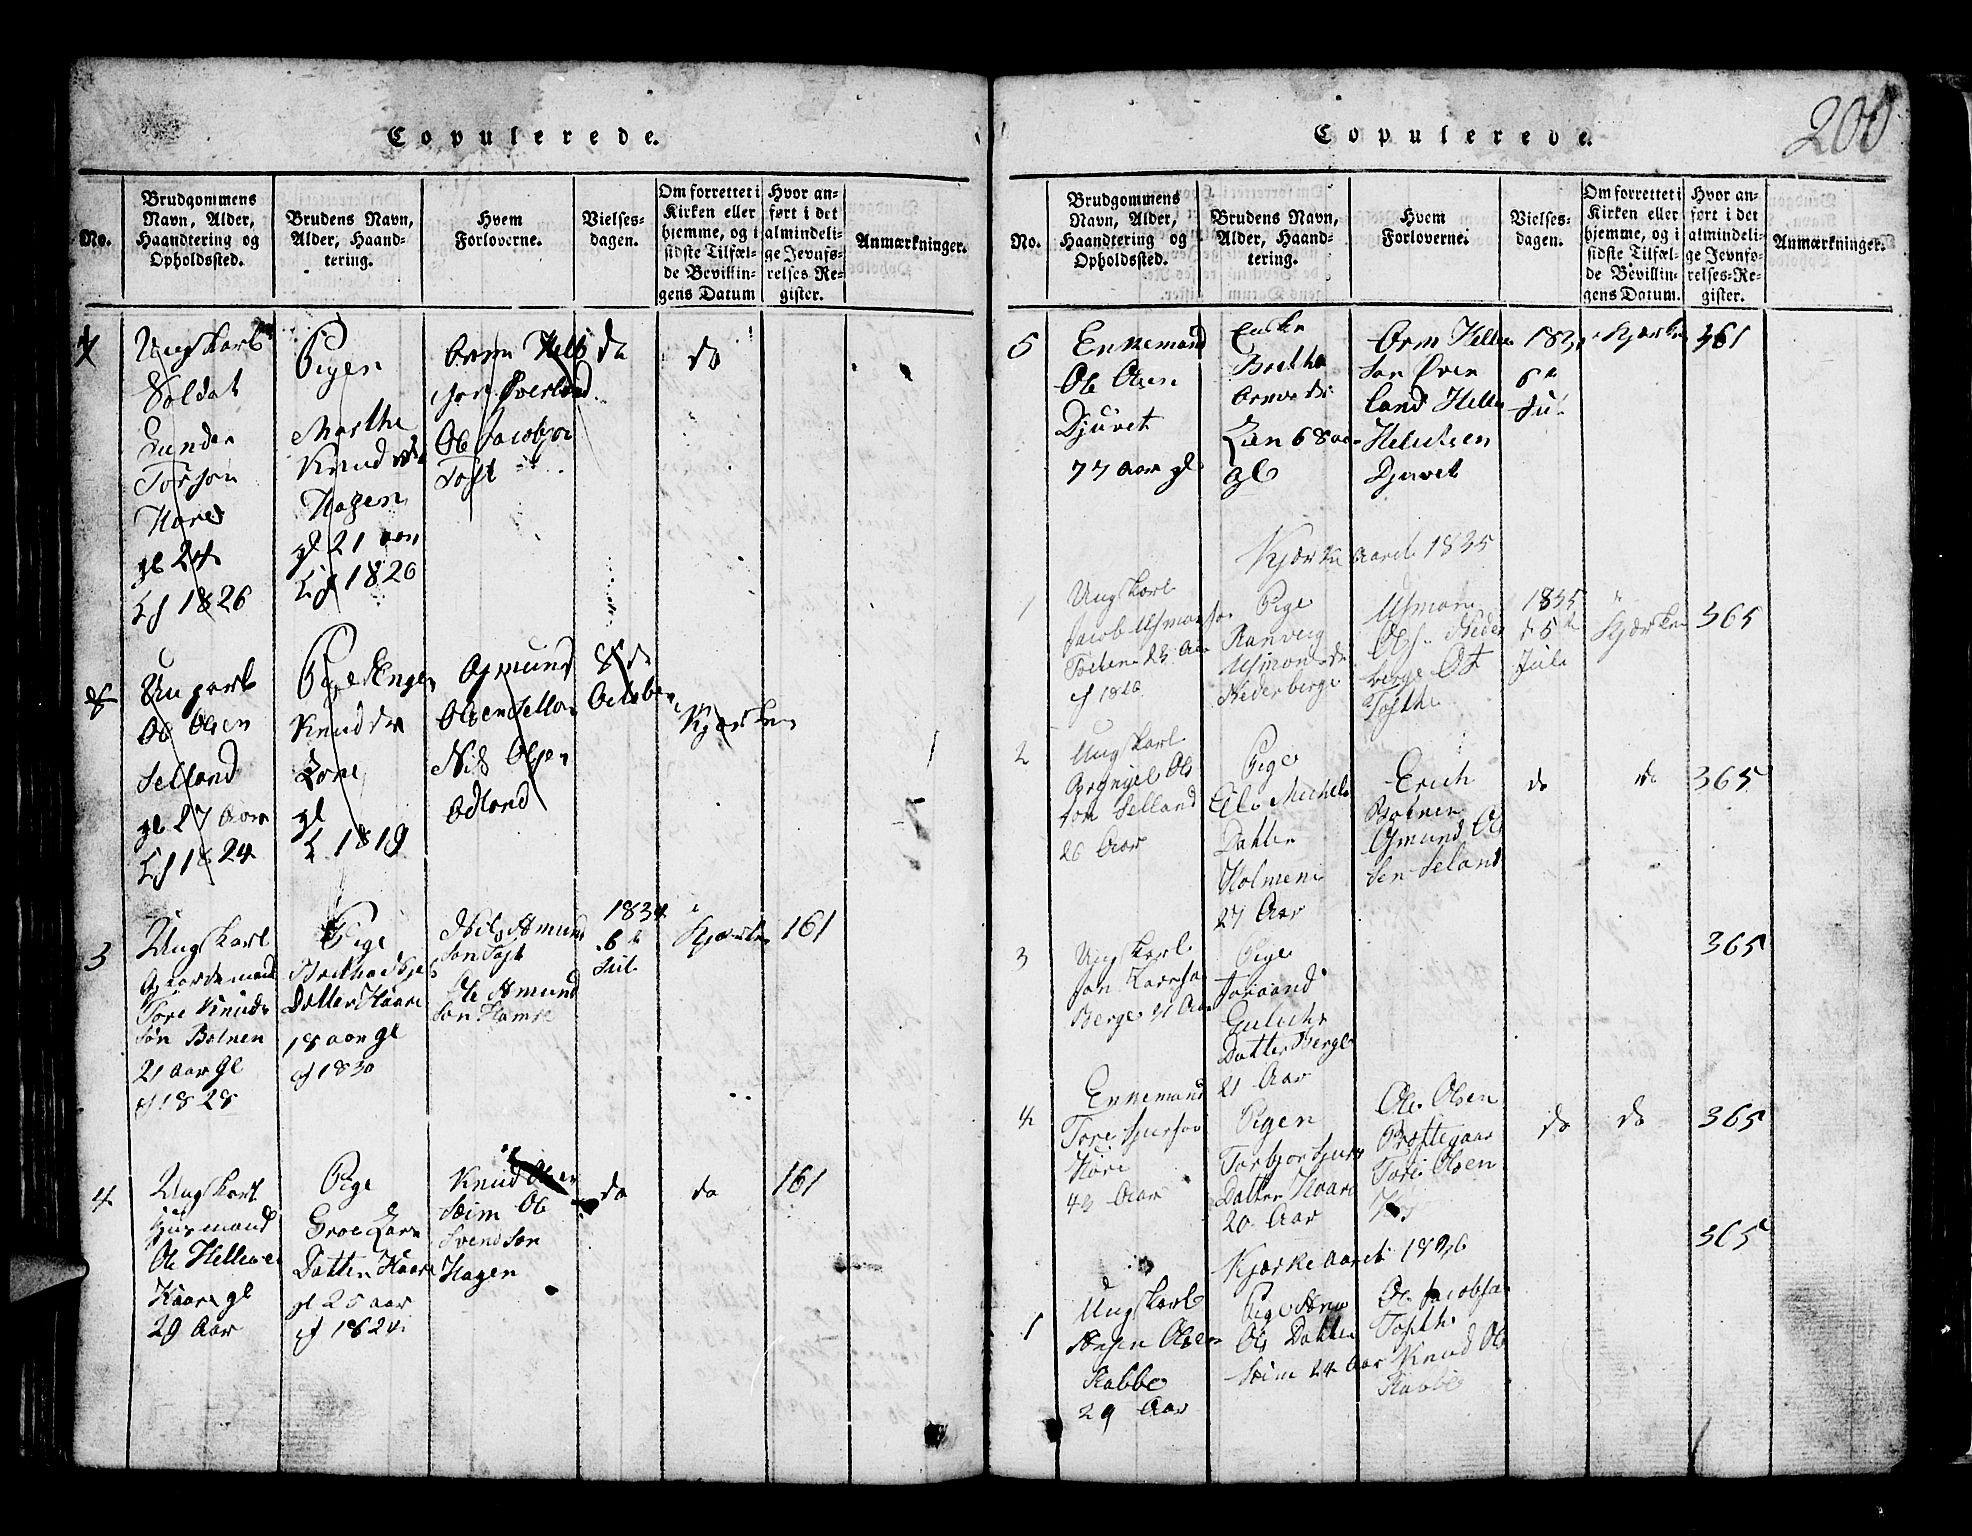 Copulerede.
No.
Brudgommens
Navn, Alder,
Haandtering og
Opholdssted.
Brudens Navn,
Alder, Haand-
tering.
Hvem
Forloverne.
Vielses-
dagen.
Om forrettet i
Kirken eller
hjemme, og i
sidste Tilfæl-
de Bevillin-
gens Datum
Hvor an-
ført i det
almindeli-
ge Jevnfø-
relses Re-
gister.
Anmærkninger.
Ungkarl
Soldat
Gunder
Torson
Hore
gl 24
Cf 1826
Pigen
Marthe
Knudsd
Hagen
gl 21 aar
Cf 1826
Orm Hell
son Øverland
Ole Jacobson
Toft
do
do
Ungkarl
Ole Olsen
Selland
gl 27 Aar
Cf 1824
Pige Enge
Knudsd
Lone
gl
1819
Osmund
Olsen Selland
Nils Olsen
Odland
8 de
Octobe
Kjærken
3
Ungkarl
Gaardemand
Tore Knuds
søn Botnen
21 aar gl
cf 1828
Pige
Datter Haare
18 aar gl
cf 1830
Nils Amund
søn Toft
Ole Amund
søn Hamre
1834
6 d
Juli
Kjærken
161
4
Ungkarl
Husmand
Ole Helle
Haare gl
29 Aar
Pige
Groe Lars
Datter Haare
gl 25 aar
cf 1824
Knud Olsen
Seim Ole
Svendsøn
Hagen
do
do
161
Copulerede.
200
No.
Brudgommens
Navn, Alder,
Haandtering og
Opholdssted.
Brudens Navn,
Alder, Haand-
tering.
Hvem
Forloverne.
Vielses-
dagen.
Om forrettet i
Kirken eller
hjemme, og i
sidste Tilfæl-
de Bevillin-
gens Datum.
Hvor an-
ført i det
almindeli-
ge Jevnfø-
relses-Re-
gister.
Anmærkninger.
5
Enkemand
Ole Olsen
Djuvet
77 aar gl
Enke
Brithe
Lien 68 aar
gl
Orm Helle
søn Øver
land Helle
Djuvet
6 d
Jul
Kjærken
361
Kjærkeaaret 1835
1
Ungkarl
Jacob Asmonson
28 Aar
Pige
Ranveig
Asmonsd
Nederberge
Asmon
Ols. Neder
berge
Tofthe
1835
d 5 te
Juli
Kjærken
365
2
Ungkarl
Brynjel Ols
søn Selland
26 Aar
Pige
Michels
Datter
Holmen
27 Aar
Erich
Botnen
Osmund Ol
sen Seland
do
do
365
3
Ungkarl
Jon Larsson
Berge 21 Aar
Pige
Datter Berge
21 Aar
365
4
Enkemand
Tore Sjurson
Hore
43 Aar
Pigen
Torbjor Sjurs
Datter Haare
20 Aar
Ole Olsen
Præstegaar
Tore Olsen
do
do
365
Kjærkeaaret 1836
1
Ungkarl
Olsen
Skabbe
29 Aar
Pige Anna
Ols Datter
Seim 24 aar
Ole Jacobson
Tofthe
Knud Ols
Skabbe
365